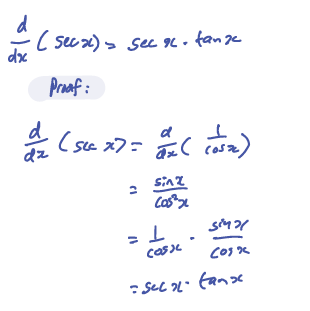 d/dx (sec x) = sec x · tan x
Proof:
d/dx (sec x) = d/dx (1/cos x)
= sin x/cos²x
= 1/cos x · sin x/cos x
= sec x · tan x